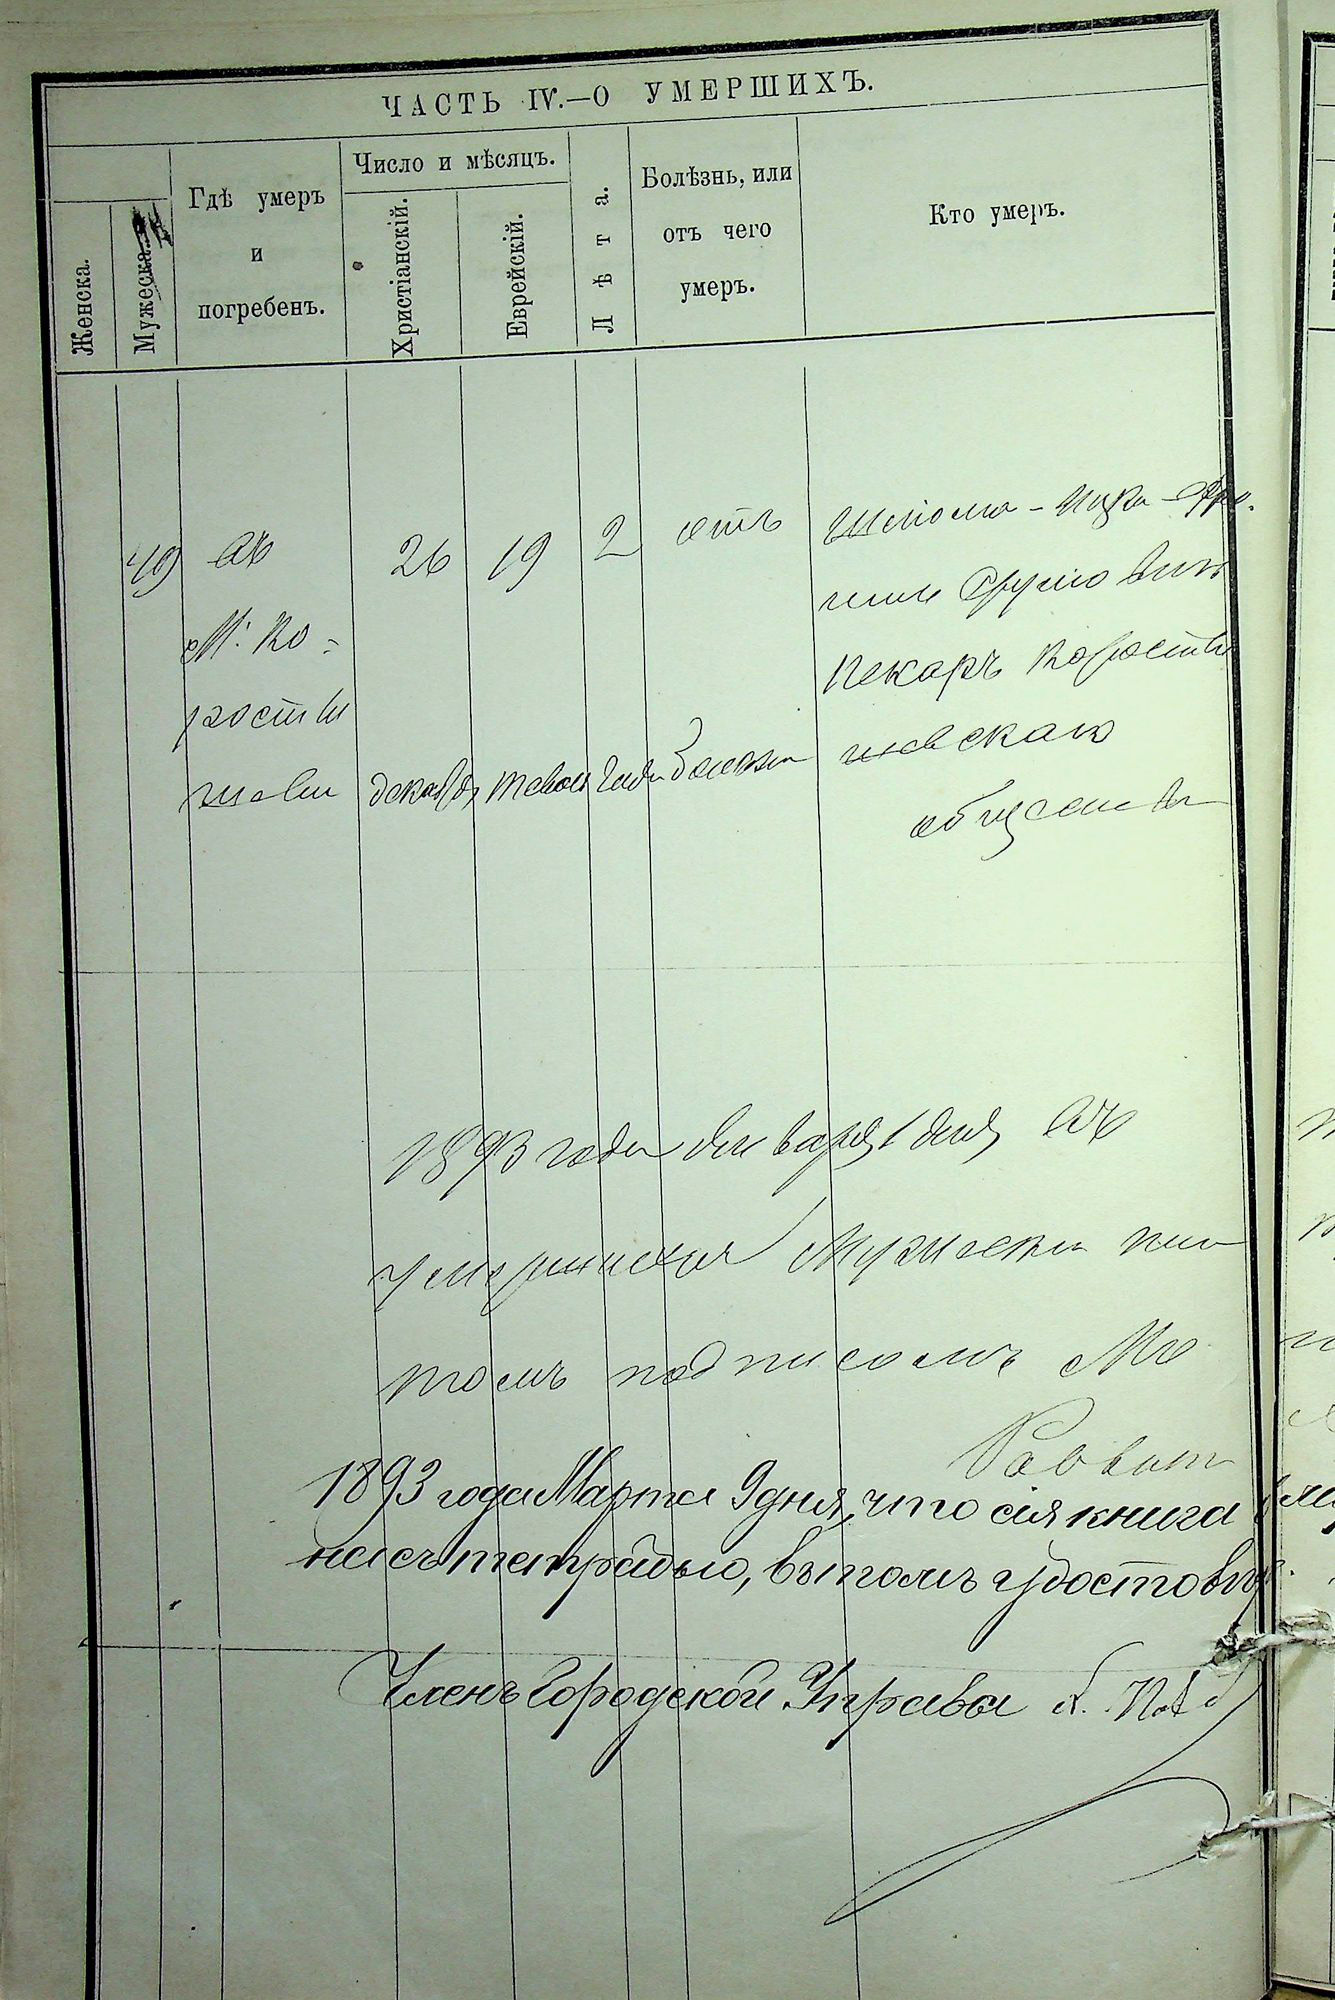 ЧАСТЬ IV.—О УМЕРШИХЪ.
Женска.
Мужеска.
Гдѣ умеръ
и
погребенъ.
Число и мѣсяцъ.
Христіанскій.
Еврейскій.
Лѣта.
Болѣзнь, или
отъ чего
умеръ.
Кто умеръ.
49
въ
М. Ко=
рости
шеви
26
декабря
19
тевета
2
года
отъ
болезни
Шліома-Ицка-
Пекаръ Корости
шевскаго
общества
1893 года января 1 дня въ
умершихъ Мужеска
томъ подписомъ
Раввинъ
1893 года Марта 9 дня, что сія книга
на съ тетрадью, въ томъ удостовѣр.
Членъ Городской Управы